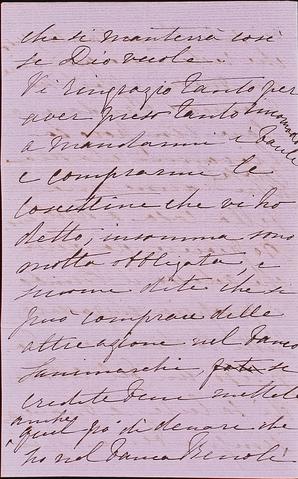 che si manterrà così
se Dio vuole.
Vi ringrazio tanto per
aver preso tanto incomodo
a mandarmi i
e comprarmi le
che vi ho
detto, insomma sono
molto obbligata, e
dite che si
può comprare delle
altre azione nel Banco
se
credete bene mettete
anche quel pò di denare che
ho nel Banco